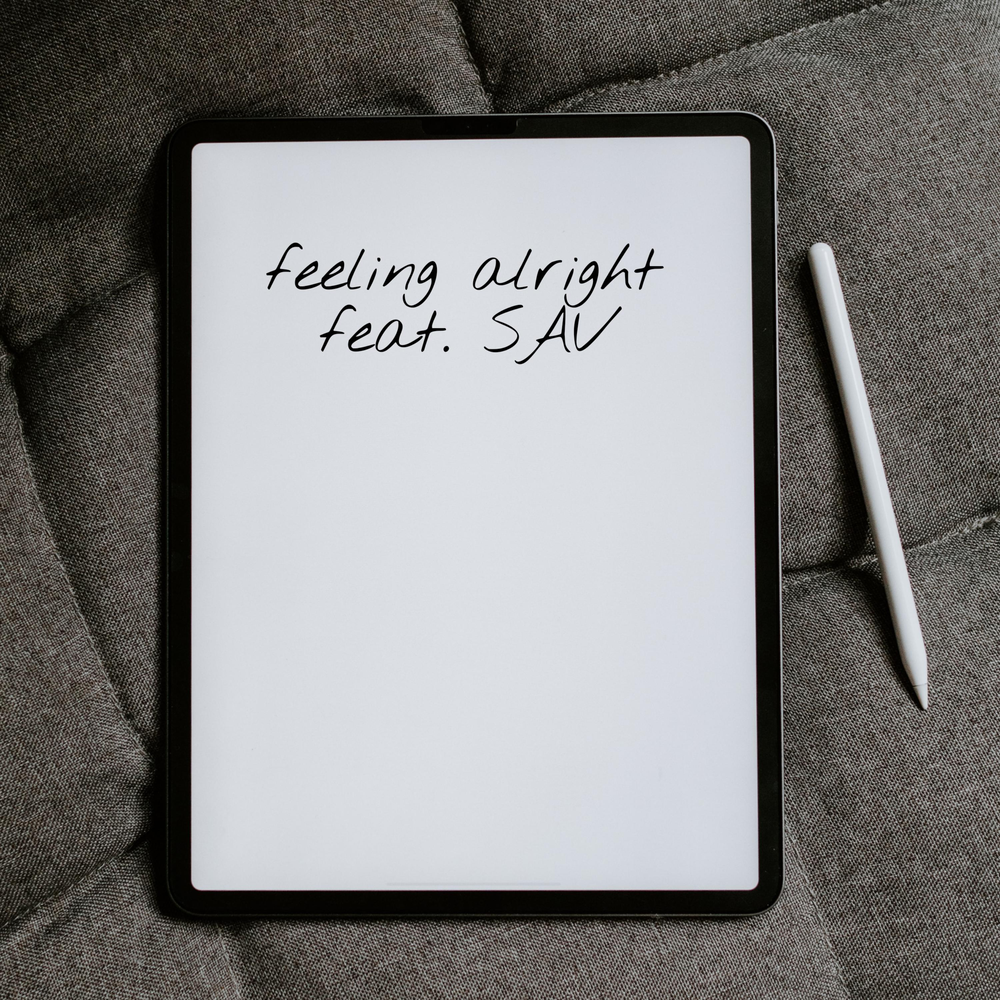 feeling alright
feat. SAV